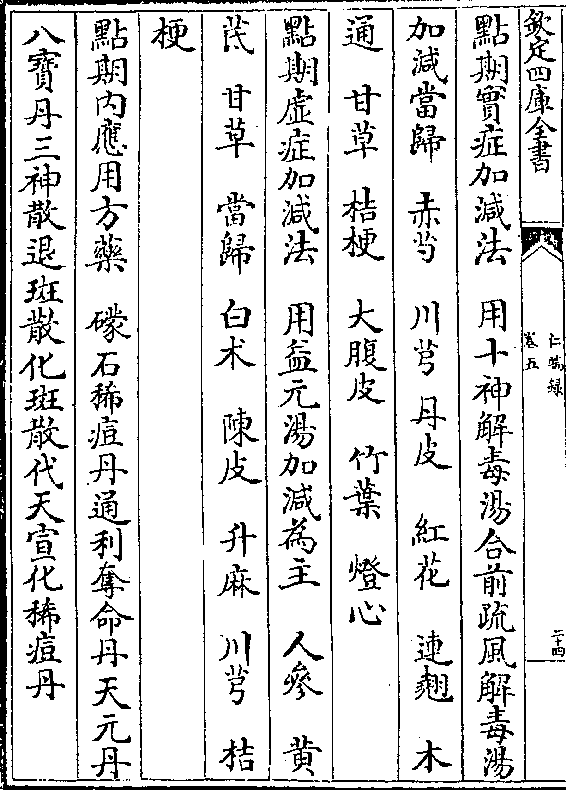 欽定四庫全書
仁端錄
卷五
二十四
點期實症加減法 用十神解毒湯合前疏風解毒湯
加減當歸 赤芍 川芎 丹皮 紅花 連翹 木
通 甘草 桔梗 大腹皮 竹葉 燈心
點期虛症加減法 用益元湯加減為主 人參 黄
茋 甘草 當歸 白术 陳皮 升麻 川芎 桔
梗
點期內應用方藥 礞石稀痘丹通利奪命丹天元丹
八寶丹三神散退斑散化斑散代天宣化稀痘丹